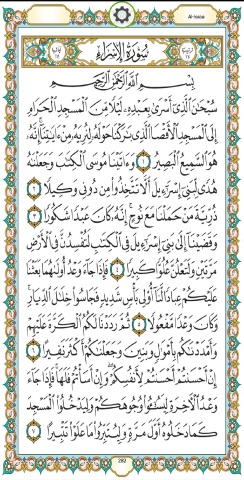 Al-Israa
سُورَةُ الإِسْرَاءِ
بِسْمِ اللَّهِ الرَّحْمَٰنِ الرَّحِيمِ
سُبْحَٰنَ الَّذِي أَسْرَىٰ بِعَبْدِهِ لَيْلًا مِّنَ الْمَسْجِدِ الْحَرَامِ
إِلَى الْمَسْجِدِ الْأَقْصَا الَّذِي بَٰرَكْنَا حَوْلَهُ لِنُرِيَهُ مِنْ ءَايَٰتِنَا إِنَّهُ
هُوَ السَّمِيعُ الْبَصِيرُ ١ وَءَاتَيْنَا مُوسَى الْكِتَٰبَ وَجَعَلْنَٰهُ
هُدًى لِّبَنِي إِسْرَٰٓءِيلَ أَلَّا تَتَّخِذُوا مِن دُونِي وَكِيلًا ٢
ذُرِّيَّةَ مَنْ حَمَلْنَا مَعَ نُوحٍ إِنَّهُ كَانَ عَبْدًا شَكُورًا ٣
وَقَضَيْنَا إِلَىٰ بَنِي إِسْرَٰٓءِيلَ فِي الْكِتَٰبِ لَتُفْسِدُنَّ فِي الْأَرْضِ
مَرَّتَيْنِ وَلَتَعْلُنَّ عُلُوًّا كَبِيرًا ٤ فَإِذَا جَاءَ وَعْدُ أُولَىٰهُمَا بَعَثْنَا
عَلَيْكُمْ عِبَادًا لَّنَا أُولِي بَأْسٍ شَدِيدٍ فَجَاسُوا خِلَٰلَ الدِّيَارِ
وَكَانَ وَعْدًا مَّفْعُولًا ٥ ثُمَّ رَدَدْنَا لَكُمُ الْكَرَّةَ عَلَيْهِمْ
وَأَمْدَدْنَٰكُم بِأَمْوَٰلٍ وَبَنِينَ وَجَعَلْنَٰكُمْ أَكْثَرَ نَفِيرًا ٦
إِنْ أَحْسَنتُمْ أَحْسَنتُمْ لِأَنفُسِكُمْ وَإِنْ أَسَأْتُمْ فَلَهَا فَإِذَا جَاءَ
وَعْدُ الْءَاخِرَةِ لِيَسُۥٓـُٔوا وُجُوهَكُمْ وَلِيَدْخُلُوا الْمَسْجِدَ
كَمَا دَخَلُوهُ أَوَّلَ مَرَّةٍ وَلِيُتَبِّرُوا مَا عَلَوْا تَتْبِيرًا ٧
282